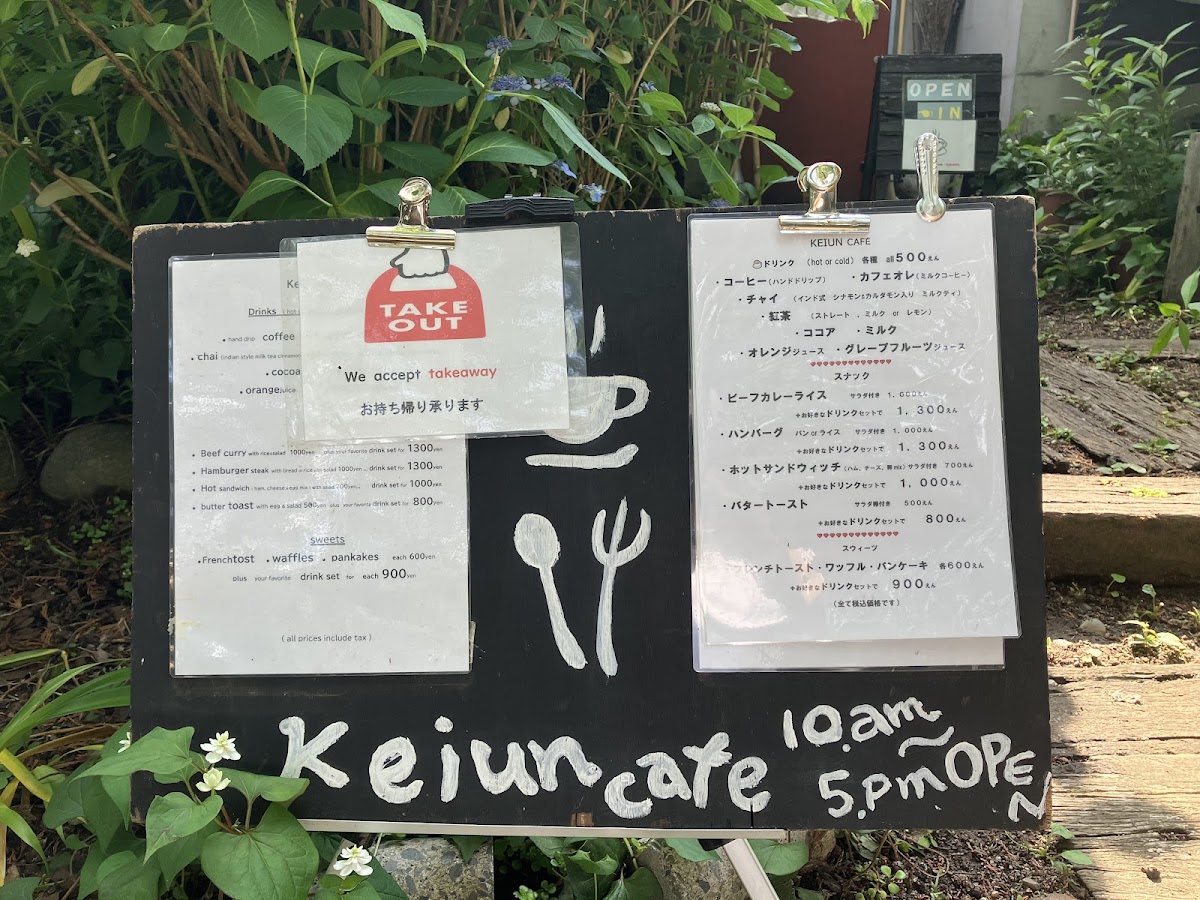 OPEN
IN
Ke
Drinks
hand drip coffee
・chai (indian style milk tea cinnamon
・cocoa
・orangejuice
TAKE
OUT
We accept takeaway
お持ち帰り承ります
・Beef curry with rice&salad 1000yen plus your favorite drink set for 1300yen
・Hamburger steak with bread or rice with salad 1000yen drink set for 1300yen
・Hot sandwich drink set for 1000yen
・butter toast with egg & salad 500yen plus your favorite drink set for 800yen
sweets
・Frenchtost ・waffles ・pankakes each 600yen
plus your favorite drink set for each 900yen
( all prices include tax )
KEIUN CAFE
ドリンク (hot or cold) 各種 all500えん
・コーヒー(ハンドドリップ) ・カフェオレ(ミルクコーヒー)
・チャイ (インド式 シナモン&カルダモン入り ミルクティ)
・紅茶 (ストレート . ミルク or レモン)
・ココア ・ミルク
・オレンジジュース ・グレープフルーツジュース
スナック
・ビーフカレーライス サラダ付き 1,000えん
+お好きなドリンクセットで 1,300えん
・ハンバーグ パンorライス サラダ付き 1,000えん
+お好きなドリンクセットで 1,300えん
・ホットサンドウィッチ(ハム、チーズ、卵mix)サラダ付き 700えん
+お好きなドリンクセットで 1,000えん
・バタートースト サラダ卵付き 500えん
+お好きなドリンクセットで 800えん
スウィーツ
フレンチトースト・ワッフル・パンケーキ 各600えん
+お好きなドリンクセットで 900えん
(全て税込価格です)
Keiun cafe
10.am
〜
5.pm OPEN